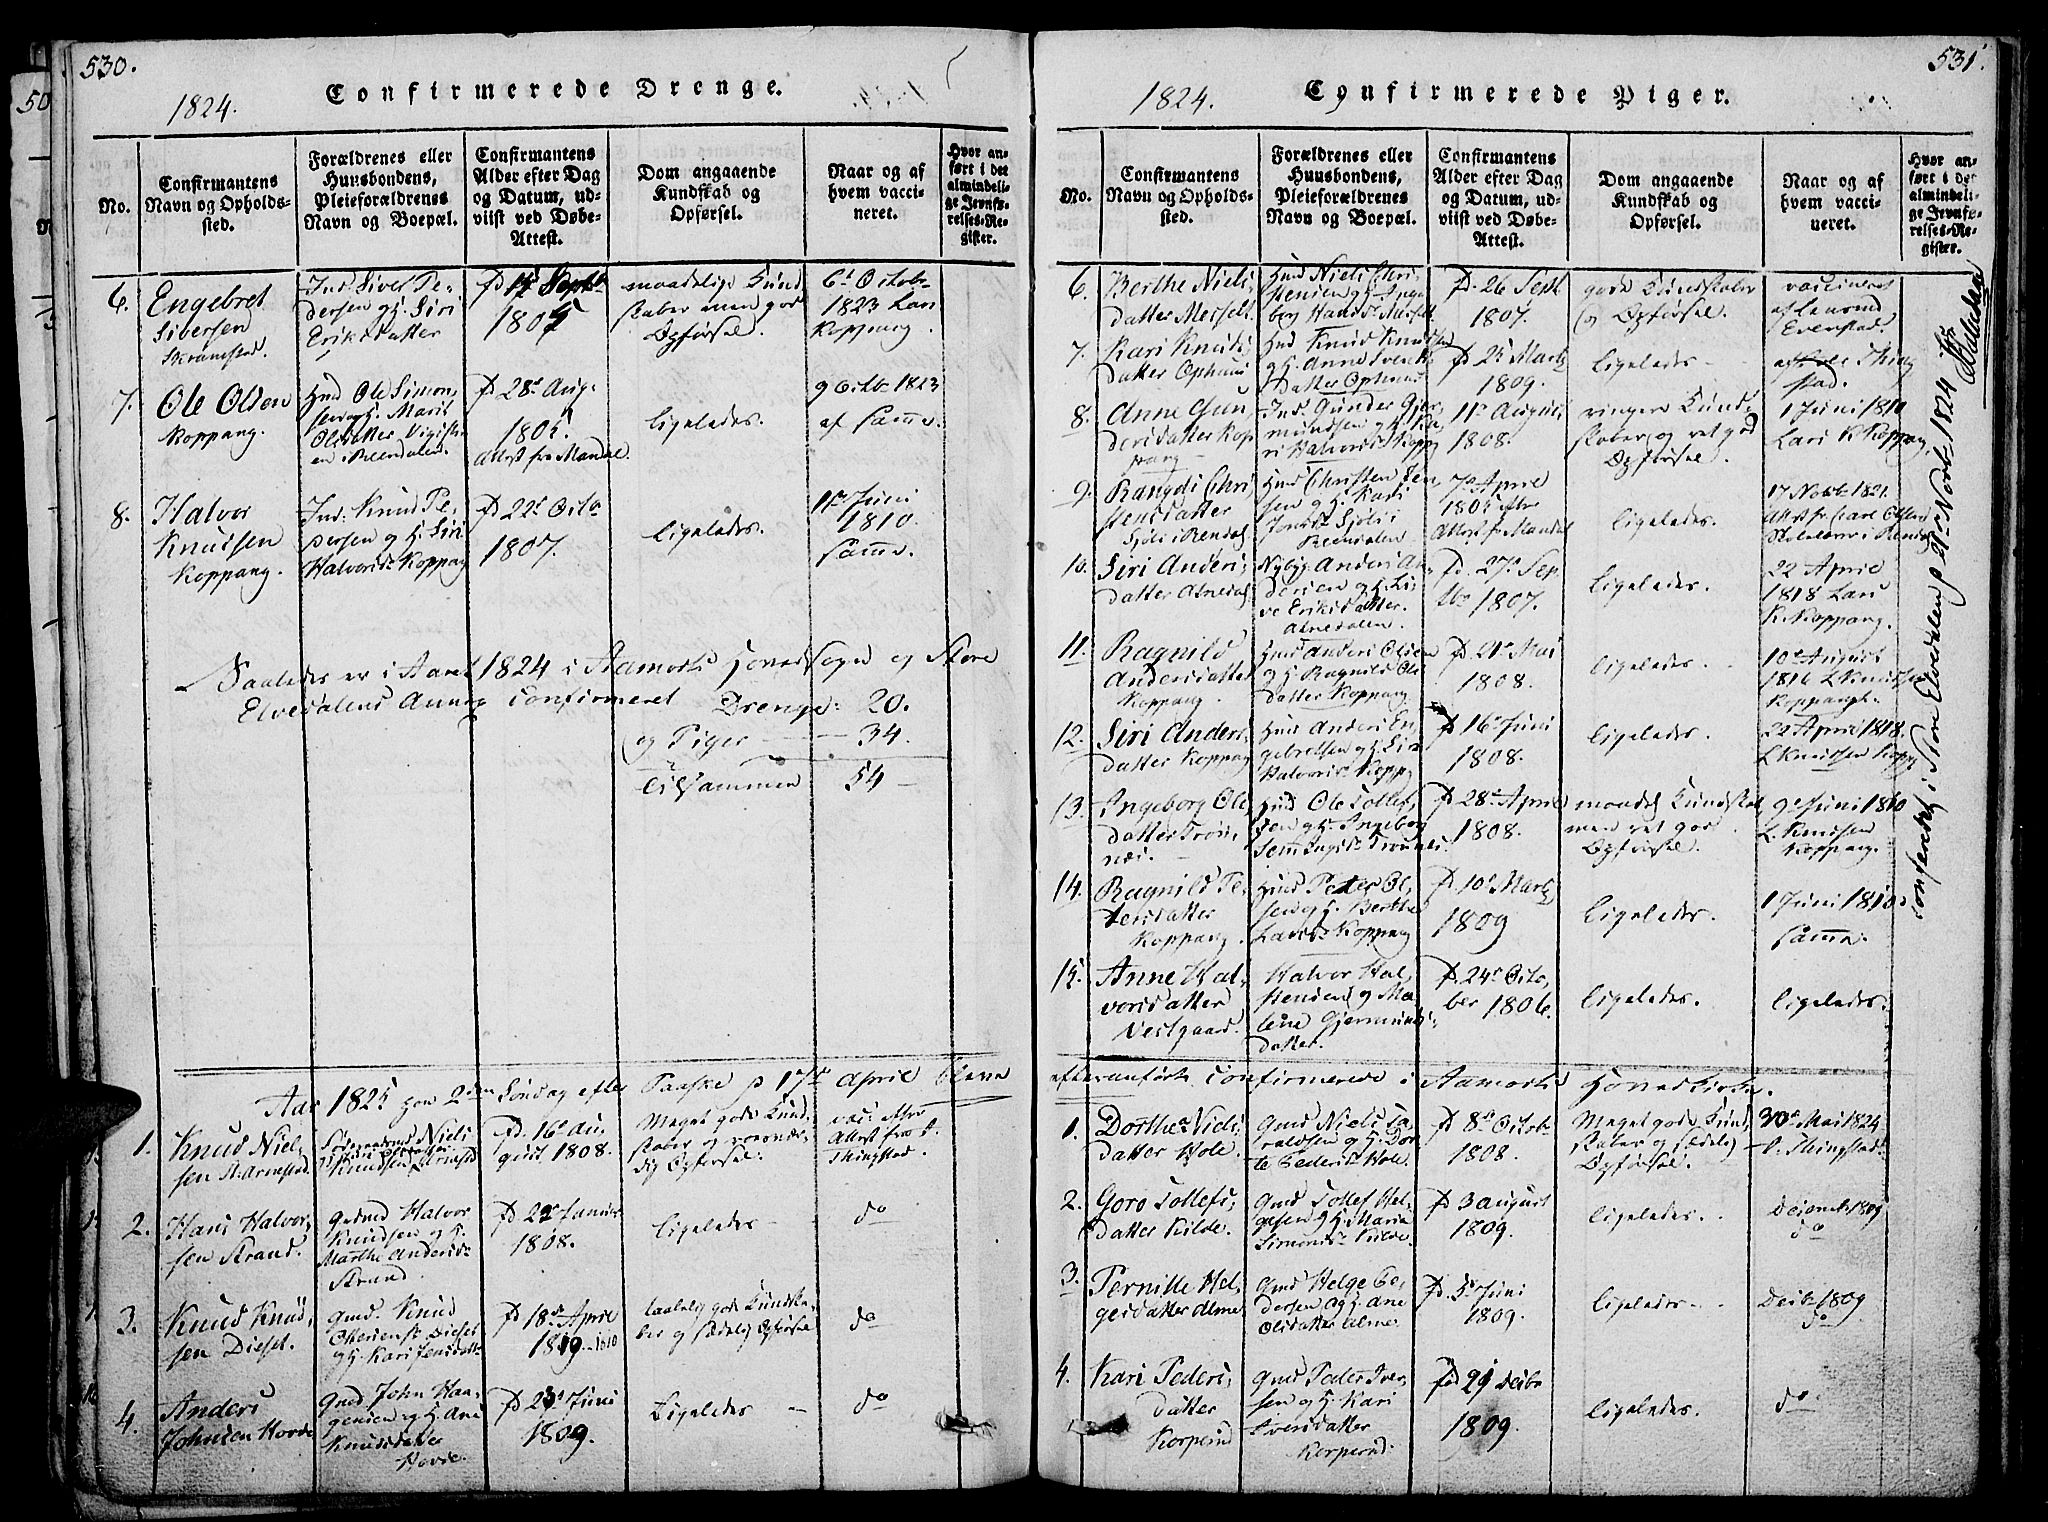 530.
1824.
Confirmerede Drenge.
No.
Confirmantens
Navn og Opholds-
sted.
Forældrenes eller
Huusbondens,
Pleieforældrenes
Navn og Boepæl.
Confirmantens
Alder efter Dag
og Datum, ud-
viist ved Døbe-
Attest.
Dom angaaende
Kundskab og
Opførsel.
Naar og af
hvem vacci-
neret.
Hvor an-
ført i det
almindeli-
ge Jevnfø-
relses-Re-
gister.
6.
Engebret
Siversen
Ind. Siver Pe-
dersen og H. Siri
Eriksdatter
maadelige Kund-
skaber men god
Opførsel.
6t Octob.
1823 Lars
Koppang.
7.
Ole Olsen
Koppang.
Hmd Ole Simon-
sen og H. Marit
Olsdatter
i Reendalen.
fd 28d Aug.
1805.
Attest fra Mandal.
ligeledes.
9 Octb. 1823
af samme.
8.
Halvor
Knudsen
Koppang.
Ind: Knud Pe-
dersen og H. Siri
Halvorsd. Koppang
fd 22d Octb
1807.
ligeledes.
1st Juni
1810.
samme.
Saaledes er i Aaret 1824 i Aamots Hovedsogn og Store
Elvedalens Annex Confirmeret Drenge: 20.
og Piger — 34.
Tilsammen 54 —
Aar 1825 paa 2den Søndag efter Paaske d 17de April bleve
1.
Knud Niel-
sen Starmstad.
Niels
Knudsen Starmstad
fd. 16d Au-
gust. 1808.
Meget gode Kund-
skaber og
Opførsel.
vac: efter
Attest fra
Thingstad.
2.
Hans Halvor-
sen Strand.
Gmd Halvor
Knudsen og H.
Marthe Andersd.
Strand.
fd 22d Januar
1808.
ligeledes —
do
3.
Knud Knud-
sen Dieset.
Gmd. Knud
Dieset
og H. Kari Jensdatt.
fd 18de April
1809 — 1810
gode Kundska-
ber og sædelig Opførsel
do
4.
Anders
Johnsen Hovde
Gmd John Haa-
gensen og H. Ane
Knudsdatter
Hovde.
Juni
1809.
Ligeledes —
do
531.
1824.
Confirmerede Piger.
No.
Confirmantens
Navn og Opholds-
sted.
Forældrenes eller
Huusbondens,
Pleieforældrenes
Navn og Boepæl.
Confirmantens
Alder efter Dag
og Datum, ud-
viist ved Døbe-
Attest.
Dom angaaende
Kundskab og
Opførsel.
Naar og af
hvem vacci-
neret.
Hvor an-
ført i det
almindeli-
ge Jevnfø-
relses-Re-
gister.
6.
Berthe Niels-
datter Messelt.
Hmd Niels Chri-
stensen og H. Inge-
borg Hansd. Messelt
fd. 26 Sept
1807.
gode Kundskaber
og Opførsel.
vaccineret
af Laurend
Evenstad.
7.
Kari Knuds-
datter Ophuus
Hmd Knud Knudsen
og H. Anne
datter Ophuus
Martz
1809.
ligeledes
Thing-
stad.
8.
Anne Gun-
dersdatter Kop-
pang —
Ind. Gunder Gjer-
mundsen og H. Ka-
ri Halvorsd. Koppg
11t August
1808.
ringere Kund-
skaber, og ret god
Opførsel.
1 Juni 1810
Lars K. Koppang.
9.
Rangdi Chri-
stensdatter
Sjøli i Rendal.
Hmd Christen Jen-
sen og H. Kari
Jonsd. Sjøli i
Reendalen
7d April
1805 efter
Attest fr Mandal
ligeledes.
17 Novb. 1821.
10.
Siri Anders-
datter Atnedal
Nybyg. Anders An-
dersen og H. Li-
ve Eriksdatter.
Atnedalen.
fd. 27d Sep
tbr 1807.
ligeledes.
22 April
1818 Lars
K. Koppang.
11.
Ragnild
Andersdatter
Koppang.
Hmd Anders Olsen
og H. Ragnild Ols-
datter Koppang.
fd 21d Mai
1808.
ligeledes. —
10d August
1816 L Knudsen
Koppang.
12.
Siri Anders-
datter Koppang
Hmd Anders En-
gebretsen og H. Siri
Halvorsd. Koppg
fd 16d Juni
1808.
ligeledes.
22 April 1818.
L Knudsen Koppg
13.
Ingeborg Ols-
datter Trøn-
næs. —
Hmd Ole Tollef-
sen og H. Ingeborg
Semmingsd. Trønnes.
fd 28d April
1808.
maadel. Kundskab
men ret god
Opførsel.
9d Juni 1810
L. Knudsen
Koppang.
14.
Ragnild Pe-
tersdatter
Koppang.
Hmd Peter Ol-
sen og H. Berthe
Larsd. Koppang
fd. 10d Martz
1809
ligeledes.
1 Juni 1810.
samme.
15.
Anne Hal-
vorsdatter
Vestgaard.
Halvor Hal-
stensen og Ma-
lene Gjermunds-
datter.
fd. 24d Octo-
ber 1806.
ligeledes.
ligeledes.
efteranførte Confirmerede i Aamots Hovedkirke.
1.
Dorthe Niels-
datter Hole.
Gmd Niels
og H. Dor-
te Pedersd. Hole.
fd 8d Octob.
1808.
Meget gode Kund-
skaber og sædelig
Opførsel.
30d Mai 1824
Thingstad.
2.
Goro Tollefs-
datter Kilde.
Gmd Tollef Hel-
gesen og H. Marie
Simensd. Kilde.
fd 3 August
1809.
ligeledes. —
Decemb. 1809
do
3.
Pernille Hel-
gesdatter Alme
Gmd Helge Pe-
dersen og H. Ane
Olsdatter Alme.
fd. 5d Juni
1809.
ligeledes —
Decb. 1809
do
4.
Kari Peders-
datter
Korperud
Gmd Peder Iver-
sen og H. Kari
Iversdatter
Korperud.
fd 29 Decbr
1809.
ligeledes.
do